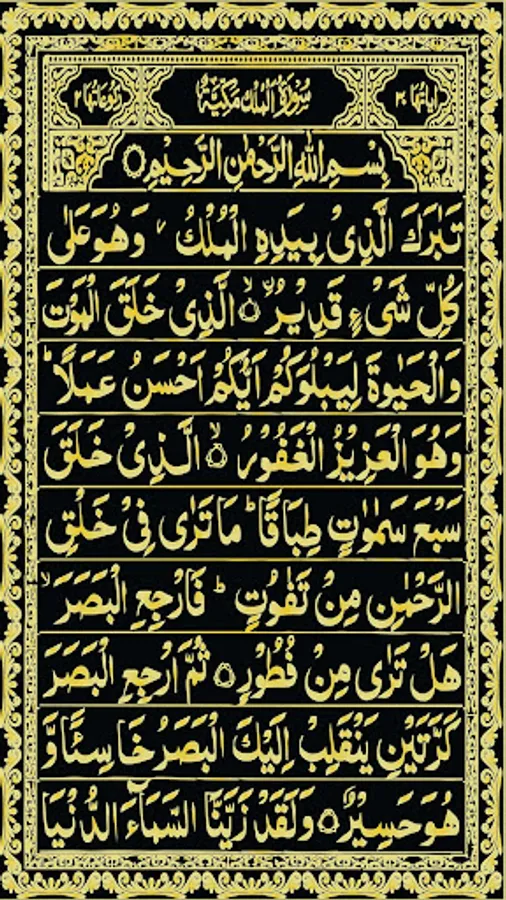 اٰیاتها ٣٠ سُوْرَةُ الْمُلْكِ مَكِّیَّةٌ رُكُوْعَاتُهَا ٢
بِسْمِ اللّٰهِ الرَّحْمٰنِ الرَّحِیْمِ
تَبٰرَكَ الَّذِیْ بِیَدِهِ الْمُلْكُ ؗ وَهُوَ عَلٰی
كُلِّ شَیْءٍ قَدِیْرُ ۙ الَّذِیْ خَلَقَ الْمَوْتَ
وَالْحَیٰوةَ لِیَبْلُوَكُمْ اَیُّكُمْ اَحْسَنُ عَمَلًا ؕ
وَهُوَ الْعَزِیْزُ الْغَفُوْرُ ۙ الَّذِیْ خَلَقَ
سَبْعَ سَمٰوٰتٍ طِبَاقًا ؕ مَا تَرٰی فِیْ خَلْقِ
الرَّحْمٰنِ مِنْ تَفٰوُتٍ ؕ فَارْجِعِ الْبَصَرَ ۙ
هَلْ تَرٰی مِنْ فُطُوْرٍ ۝ ثُمَّ ارْجِعِ الْبَصَرَ
كَرَّتَیْنِ یَنْقَلِبْ اِلَیْكَ الْبَصَرُ خَاسِئًا وَّ
هُوَ حَسِیْرٌ ۝ وَلَقَدْ زَیَّنَّا السَّمَآءَ الدُّنْیَا